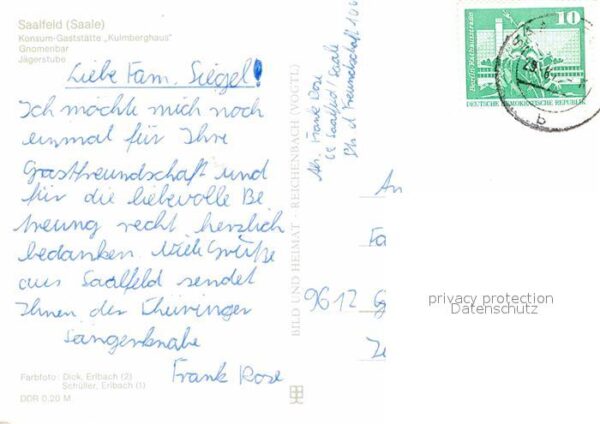 Saalfeld (Saale)
Konsum-Gaststätte „Kulmberghaus"
Gnomenbar
Jägerstube
Liebe Fam. Siegel!
Ich möchte mich noch
einmal für Ihre
Gastfreundschaft und
für die liebevolle Be
treuung recht herzlich
bedanken. Viele Grüße
aus Saalfeld sendet
Ihnen der Thüringer
Sängerknabe
Frank Rose
Farbfoto: Dick, Erlbach (2)
Schüller, Erlbach (1)
DDR 0,20 M
BILD UND HEIMAT · REICHENBACH (VOGTL)
Abs. Frank Rose
Saalfeld/Saale
Str d Freundschaft 106
An
Fa
9612 G
10
Berlin, Rathausstraße
DEUTSCHE DEMOKRATISCHE REPUBLIK
b
privacy protection
Datenschutz